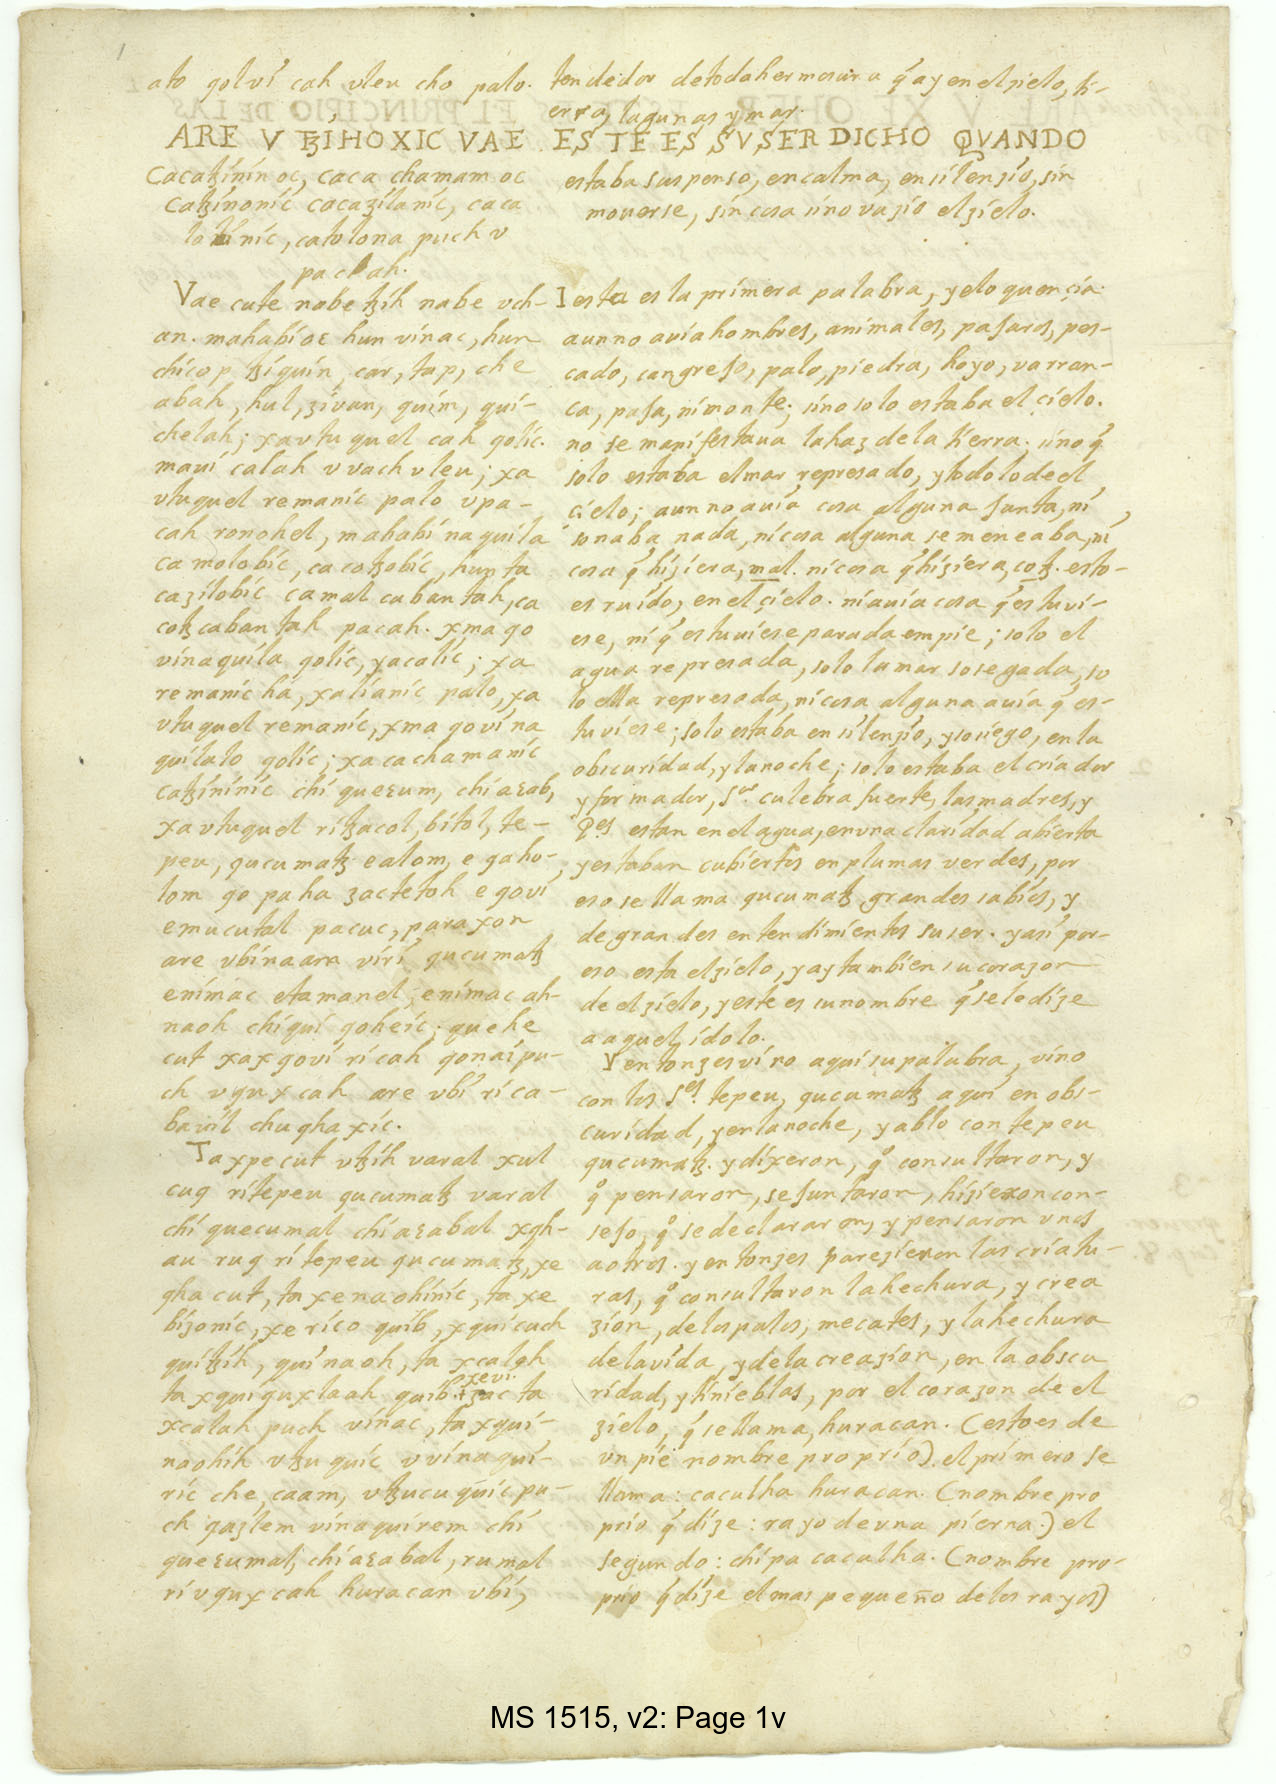 1
ato qolvi cah vleu cho palo.
ARE V ꜩIHOXIC VAE
Cacaꜩinin oc, caca chamam oc
Caꜩinonic cacaʒilanic, caca
lolinic, catolona puch v
pacah.
Vae cute nabe ꜩih nabe vch-
an. mahabioc hun vinac, hun
chicop ꜩiquin, car, tap, che
abah, hul, ʒivan, quim, qui-
chelah; xa vtuquel cah qolic.
maui calah v vach vleu; xa
vtuquel remanic palo vpa-
cah ronohel, mahabi naquila
ca molobic, ca coꜩobic, hunta
caʒilobic camal cabantah, ca
coꜩ cabantah pacah. xma qo
vinaquila qolic, yacalic; xa
remanic ha, xa lianic palo, xa
vtuquel remanic, xma qo vina
quilalo qolic; xa cachamanic
caꜩininic chi queɛum, chi aɛab,
xa vtuquel riꜩacol, bitol, te-
peu, qucumaꜩ e alom, e qaho-
lom qo pa ha ʒactetoh e qovi
e mucutal pa cuc, pa raxon
are vbinaam viri qucumaꜩ
e nimac etamanel, e nimac ah-
naoh chi qui qoheic; quehe
cut xax qovi ri cah qonai pu-
ch v qux cah are vbi ri ca-
bavil chuqhaxic.
Ta xpe cut vꜩih varal xul
cuq ri tepeu qucumaꜩ varal
chi quecumal chi aɛabal xqh-
au ruq ri tepeu qucumaꜩ, xe
qha cut, ta xe naohinic, ta xe
biʒonic, xe rico quib, xquicuch
quiꜩih, qui naoh, ta xcalah
ta xquiquxlaah quib. xevi. ta
xcalah puch vinac, ta xqui-
naohih vꜩuquic v vinaqui-
ric che, caam, vꜩucuquic pu-
ch qaʒlem vinaquirem chi
queɛumal, chi aɛabal, rumal
ri v qux cah huracan vbi,
tendedor de toda hermosura q̃ ay en el cielo, ti-
erra, lagunas y mar.
ESTE ES SV SER DICHO QUANDO
estaba suspenso, en calma, en silenʒio, sin
moverse, sin cosa sino vaʒio el ʒielo.
I esta es la primera palabra, y eloquençia.
aun no auia hombres, animales, pajaros, pes-
cado, cangrejo, palo, piedra, hoyo, varran-
ca, paja, ni monte; sino solo estaba el çielo.
no se manifestaua la haz de la tierra; sino q̃
solo estaba el mar represado, y todo lo de el
çielo; aun no auia cosa alguna junta, ni
sonaba nada, ni cosa alguna se meneaba, ni
cosa q̃ hiʒiera, mal. ni cosa q̃ hiʒiera, coꜩ. esto-
es ruido, en el çielo. ni auia cosa q̃ estuvi-
ese, ni q̃ estuviese parada em pie; solo el
agua represada, solo la mar sosegada, so
lo ella represada, ni cosa alguna auia q̃ es-
tuviese; solo estaba en silenʒio, y sosiego, en la
obscuridad, y la noche; solo estaba el criador
y formador, Sor. culebra fuerte, las madres, y
Pes estan en el agua, en una claridad abierta
y estaban cubiertos en plumas verdes, por
eso se llama qucumaꜩ, grandes sabios, y
de grandes entendimientos su ser. y asi por-
eso esta el ʒielo, y ay tambien su coraʒon
de el ʒielo, y este es su nombre q̃ se le diʒe
a aquel idolo.
Y entonʒes vino aqui su palabra, vino
con los Ses. tepeu, qucumaꜩ aqui en obs-
curidad, y en la noche, y ablo con tepeu
qucumaꜩ. y dixeron, qo consultaron, y
qo pensaron, se juntaron, hiʒieron con-
sejo, qo se declararon, y pensaron unos
a otros. y entonʒes pareʒieron las criatu-
ras, qo consultaron la hechura, y crea
ʒion, de los palos, mecates, y la hechura
de la vida, y de la creaʒion, en la obscu
ridad, y tinieblas, por el corazon de el
ʒielo, q̃ se llama, huracan. (esto es de
vn pie nombre proprio) el primero se
llama: caculha huracan. (nombre pro
prio q̃ diʒe: rayo de una pierna.) el
segundo: chipa caculha. (nombre pro-
prio q̃ diʒe el mas pequeño de los rayos)
MS 1515, v2: Page 1v